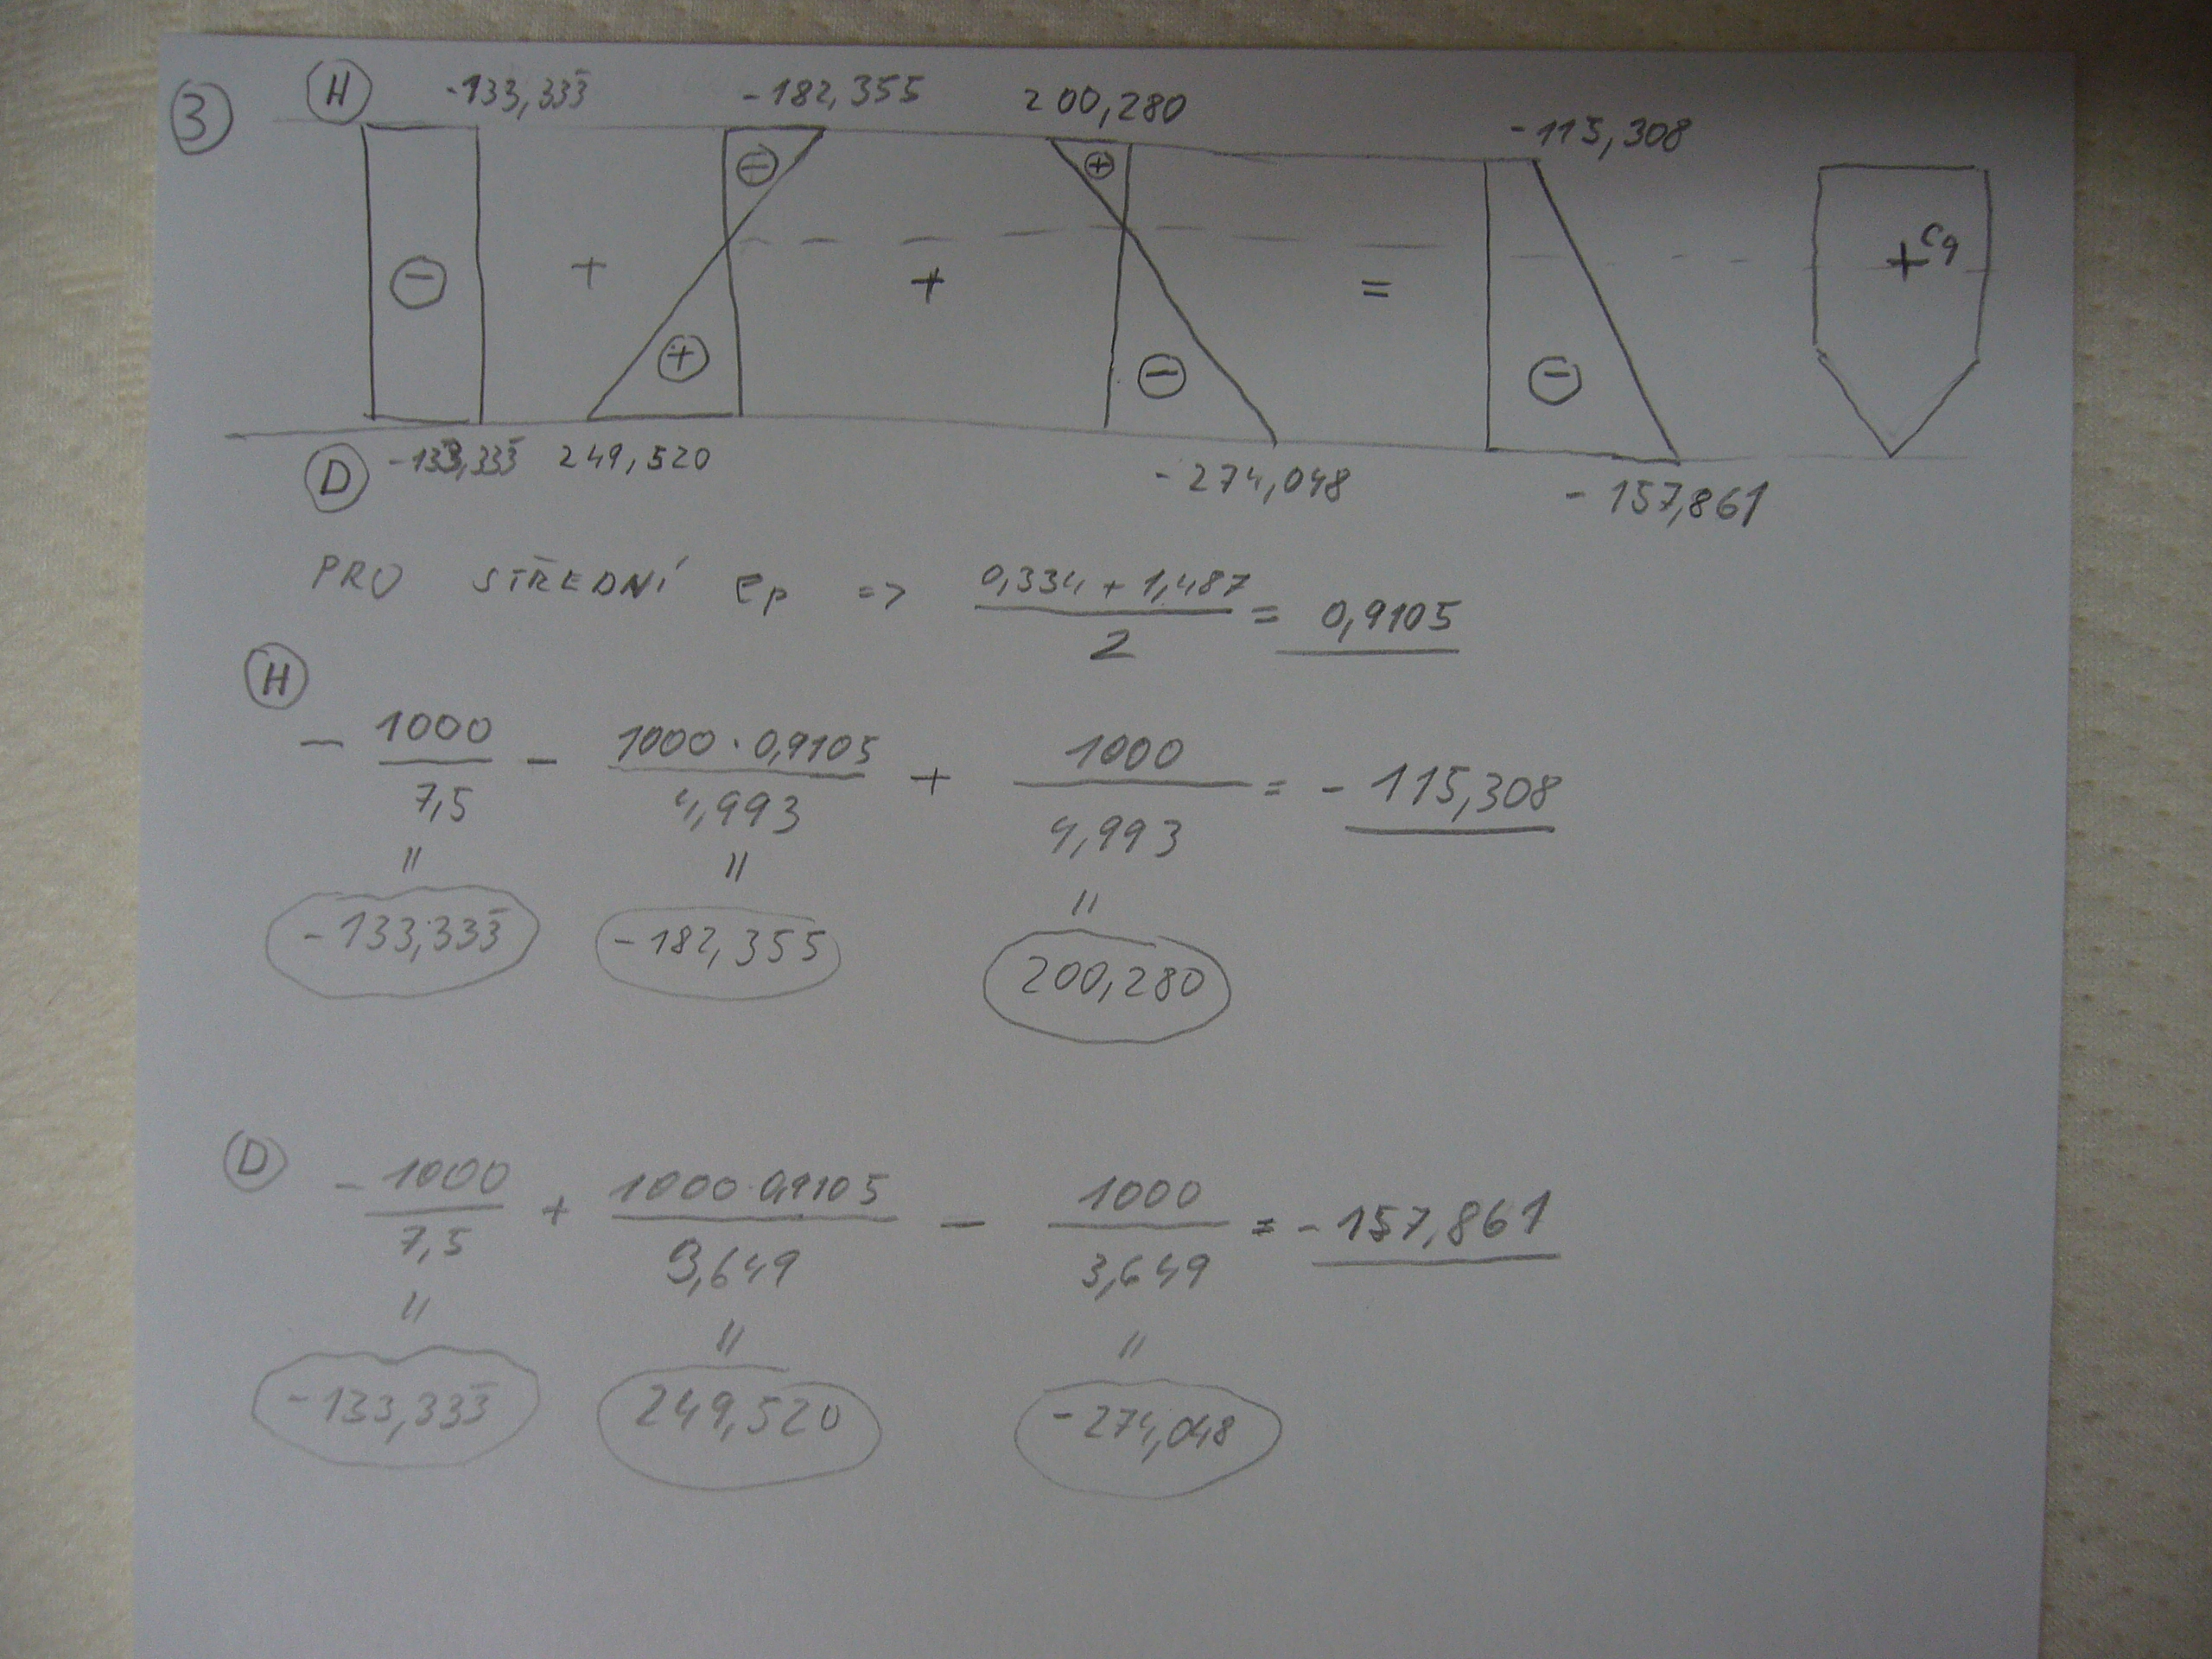 3 H -133,33̅ -182,355 200,280 -115,308
- + + + - + - = - + Cg
D -133,33̅ 249,520 -274,048 -157,861
PRO STŘEDNÍ ep => (0,334 + 1,487)/2 = 0,9105
H
- 1000/7,5 - 1000·0,9105/4,993 + 1000/4,993 = -115,308
= = =
-133,33̅ -182,355 200,280
D
- 1000/7,5 + 1000·0,9105/3,649 - 1000/3,649 = -157,861
= = =
-133,33̅ 249,520 -274,048